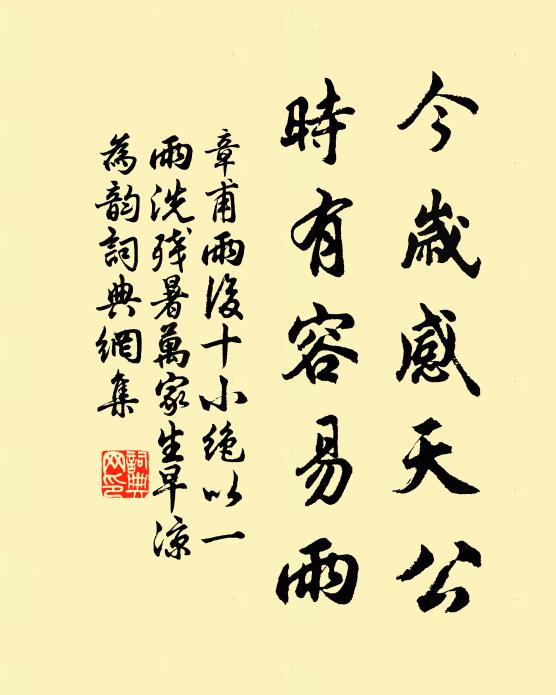 今歲感天公
時有容易雨
章甫雨後十小絶以一
雨洗残暑萬家生早涼
為韵詞典網集
詞典
网印